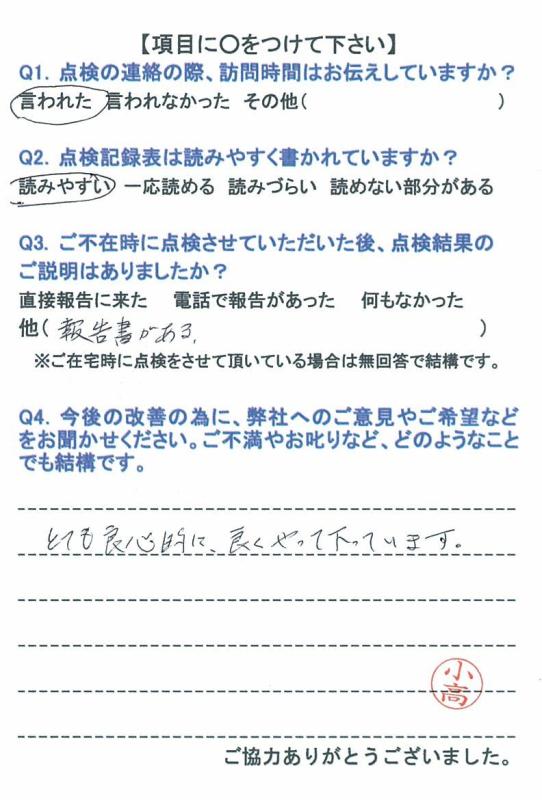 【項目に〇をつけて下さい】
Q1. 点検の連絡の際、訪問時間はお伝えしていますか？
言われた 言われなかった その他( )
Q2. 点検記録表は読みやすく書かれていますか？
読みやすい 一応読める 読みづらい 読めない部分がある
Q3. ご不在時に点検させていただいた後、点検結果の
ご説明はありましたか？
直接報告に来た 電話で報告があった 何もなかった
他( 報告書がある, )
※ご在宅時に点検をさせて頂いている場合は無回答で結構です。
Q4. 今後の改善の為に、弊社へのご意見やご希望など
をお聞かせください。ご不満やお叱りなど、どのようなこと
でも結構です。
とても良心的に、良くやって下っています。
小高
ご協力ありがとうございました。